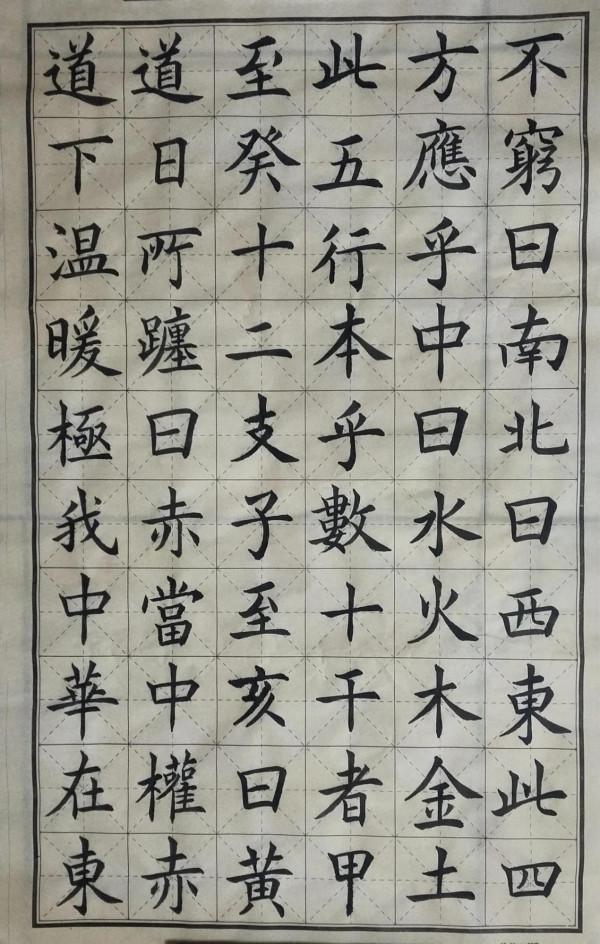 不窮曰南北曰西東此四
方應乎中曰水火木金土
此五行本乎數十干者甲
至癸十二支子至亥曰黃
道日所躔曰赤當中權赤
道下温暖極我中華在東